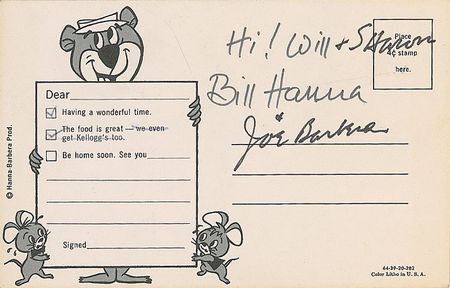 Hi! Will + Sharon
Place
4¢ stamp
here.
Bill Hanna
&
Joe Barbera
Dear
Having a wonderful time.
The food is great — we even
get Kellogg's too.
Be home soon. See you
Signed
© Hanna-Barbera Prod.
44-39-20-202
Color Litho in U. S. A.